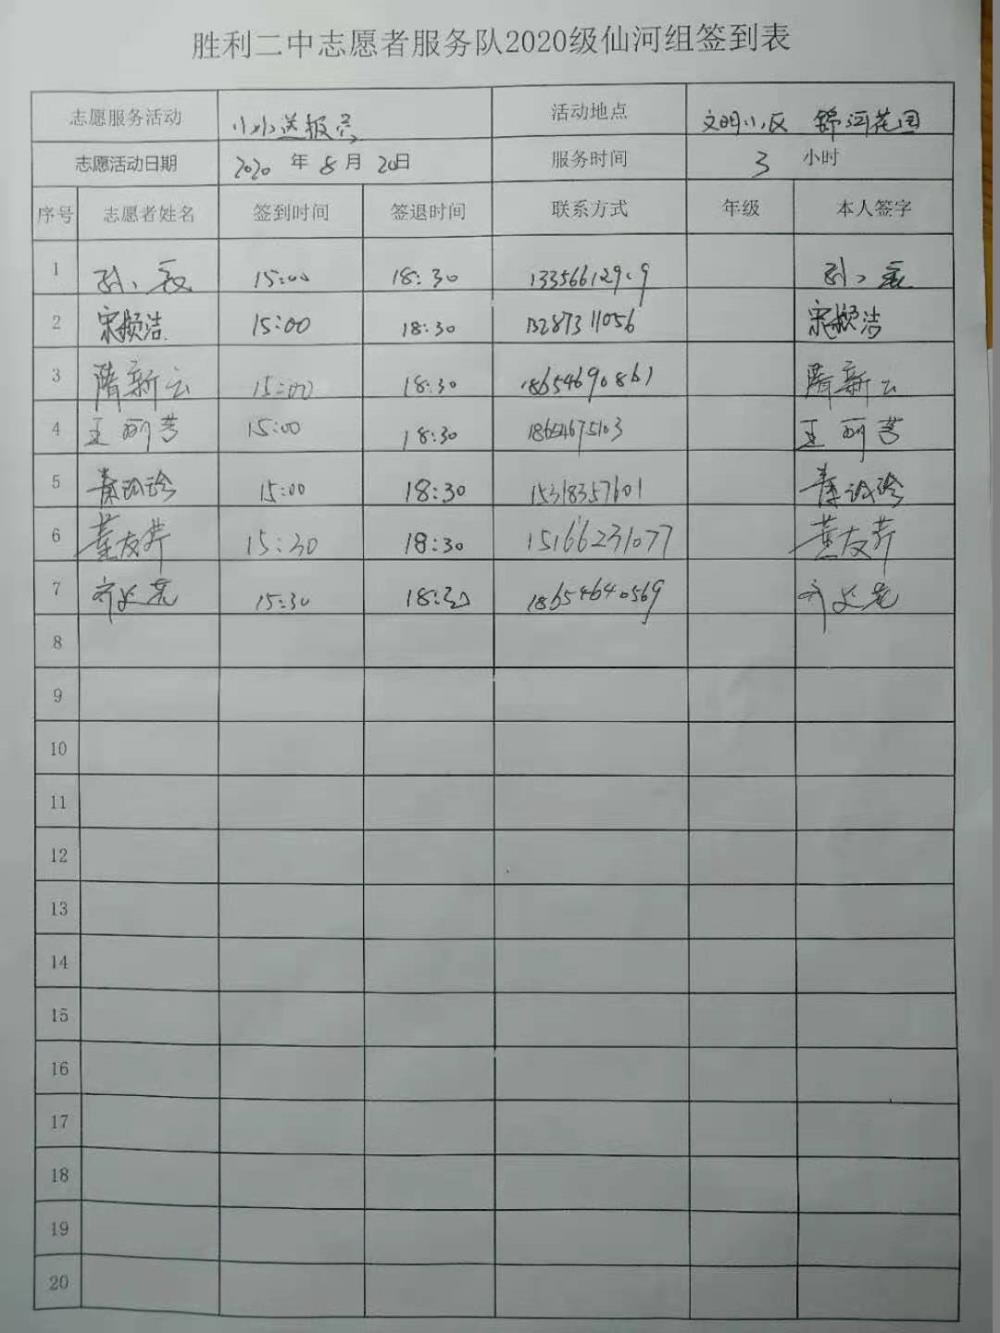 胜利二中志愿者服务队2020级仙河组签到表
志愿服务活动 小小送报员 活动地点 文明小区 锦河花园
志愿活动日期 2020 年 8 月 20日 服务时间 3 小时
序号 志愿者姓名 签到时间 签退时间 联系方式 年级 本人签字
1 15:00 18:30 13356612909
2 15:00 18:30 13287311056
3 隋新云 15:00 18:30 18654690861 隋新云
4 15:00 18:30 18654675103
5 15:00 18:30 15318357601
6 董友芹 15:30 18:30 15166231077 董友芹
7 15:30 18:30 18654640569
8
9
10
11
12
13
14
15
16
17
18
19
20